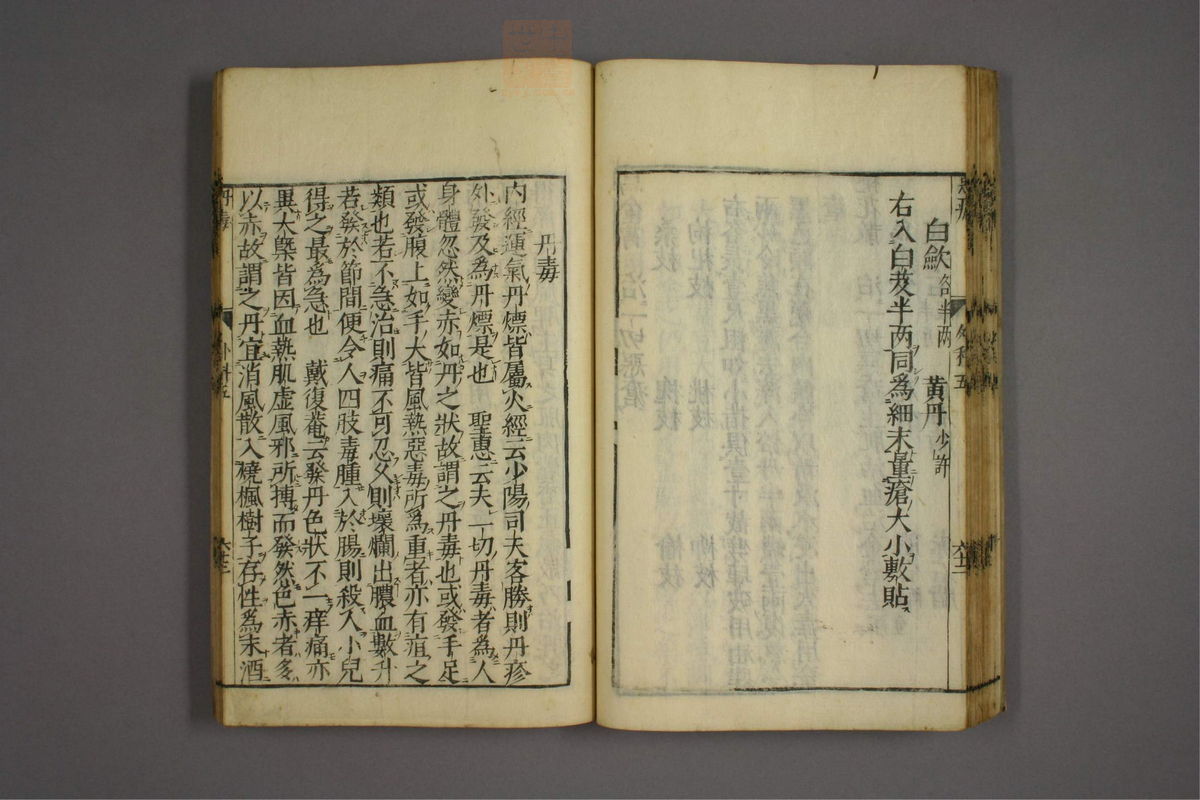 白歛 各半两 黄丹 少許
右入白芨半两同為細末量瘡大小敷貼
外科五
丹毒
内經運氣丹熛皆屬火經云少陽司天客勝則丹疹
外發及為丹熛是也 聖惠云夫一切丹毒者為人
身體忽然變赤如丹之狀故謂之丹毒也或發手足
或發腹上如手大皆風熱惡毒所為重者亦有疽之
類也若不急治則痛不可忍久則壞爛出膿血數升
若發於節間便令人四肢毒腫入於腸則殺人小兒
得之最為急也 戴復菴云發丹色狀不一痒痛亦
異大槩皆因血熱肌虚風邪所搏而發然色赤者多
以赤故謂之丹宜消風散入燒楓樹子存性為末酒
丹毒